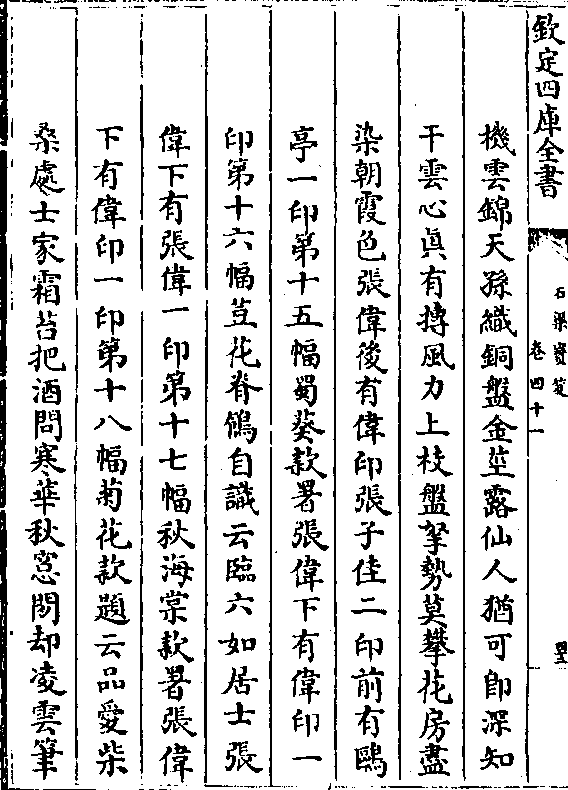 欽定四庫全書
石渠寶笈
卷四十一
機雲錦天孫織銅盤金莖露仙人猶可即深知
干雲心真有摶風力上枝盤拏勢莫攀花房盡
染朝霞色張偉後有偉印張子佳二印前有鷗
亭一印第十五幅蜀葵款署張偉下有偉印一
印第十六幅荳花脊鴒自識云臨六如居士張
偉下有張偉一印第十七幅秋海棠款署張偉
下有偉印一印第十八幅菊花款題云品愛柴
桑處士家霜苔把酒問寒華秋窓閒却凌雲筆